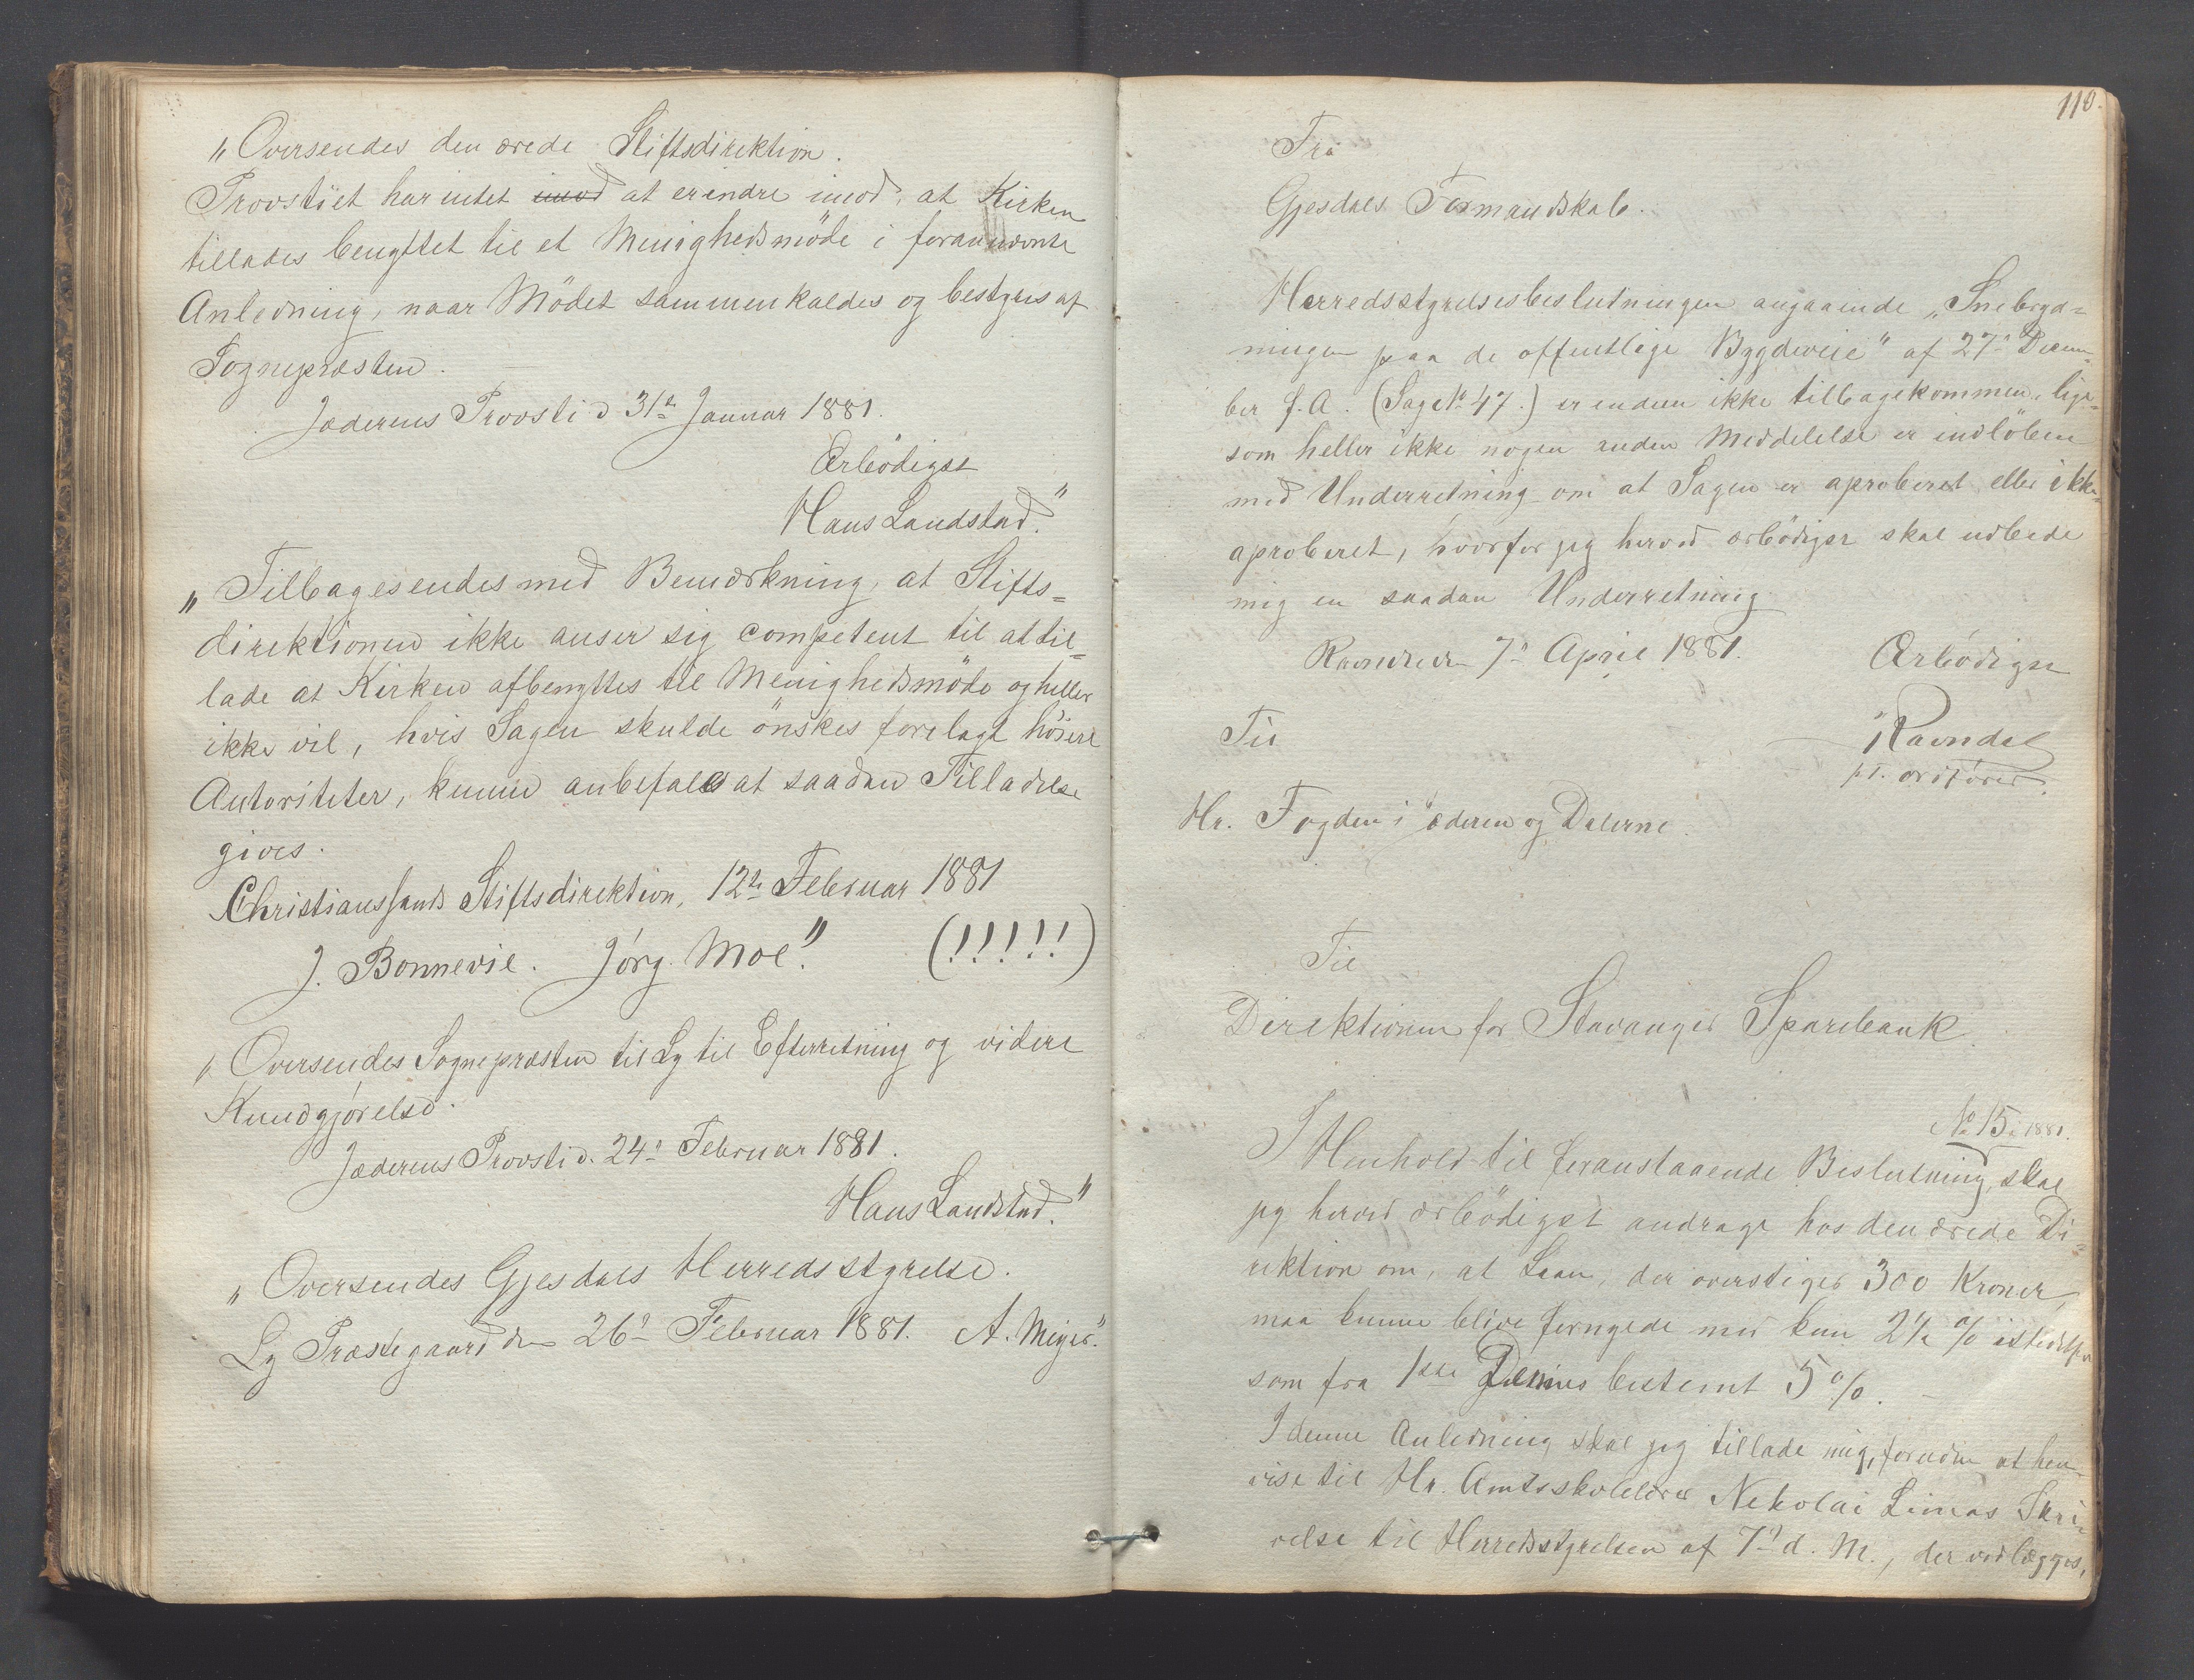 „Oversendes den ærede Stiftsdirektion.
Provstiet har intet imod at erindre imod, at Kirken
tillades benyttet til et Menighedsmöde i forannævnte
Anledning, naar Mödet sammenkaldes og bestyres af
Sognepræsten.
Jæderens Provsti d 31te Januar 1881.
Ærbödigst
Hans Landstad."
„Tilbagesendes med Bemærkning, at Stifts=
direktionen ikke anser sig competent til at til=
lade at Kirken afbenyttes til Menighedsmöde og heller
ikke vil, hvis Sagen skulde önskes forelagt höiere
Autoriteter, kunne anbefale at saadan Tilladelse
gives.
Christianssands Stiftsdirektion, 12te Februar 1881
J. Bonnevie. Jörg. Moe." (!!!!!)
„Oversendes Sognepræsten til Ly til Efterretning og videre
Kundgjörelse.
Jæderens Provsti d. 24d Februar 1881.
Hans Landstad."
„Oversendes Gjesdals Herredsstyrelse.
Ly Præstegaard den 26d Februar 1881. A. Meyer."
110.
Fra
Gjesdals Formandskab.
Herredsstyrelsesbeslutningen angaaende „Snebryd=
ningen paa de offentlige Bygdeveie" af 27d Decem=
ber f. A. (Sag No 47.) er endnu ikke tilbagekommen, lige=
som heller ikke nogen anden Meddelelse er indlöben
med Underretning om at Sagen er aproberet eller ikke=
aproberet, hvorfor jeg herved ærbödigst skal udbede
mig en saadan Underretning.
Ravndal den 7d April 1881. Ærbödigst
Til Ravndal
p.t. ordförer.
Hr. Fogden i Jæderen og Dalerne.
Til
Direktionen for Stavanger Sparebank.
No 15, 1881.
I Henhold til foranstaaende Beslutning, skal
jeg herved ærbödigst andrage hos den ærede Di=
rektion om, at Laan, der overstiger 300 Kroner,
maa kunne blive fornyede med kun 2½ % istedetfor
som fra 1ste bestemt 5 %.
I denne Anledning skal jeg tillade mig, foruden at hen=
vise til Hr. Amtsskolelærer Nikolai Limas Skri=
velse til Herredsstyrelsen af 7d d. M., der vedlægges,